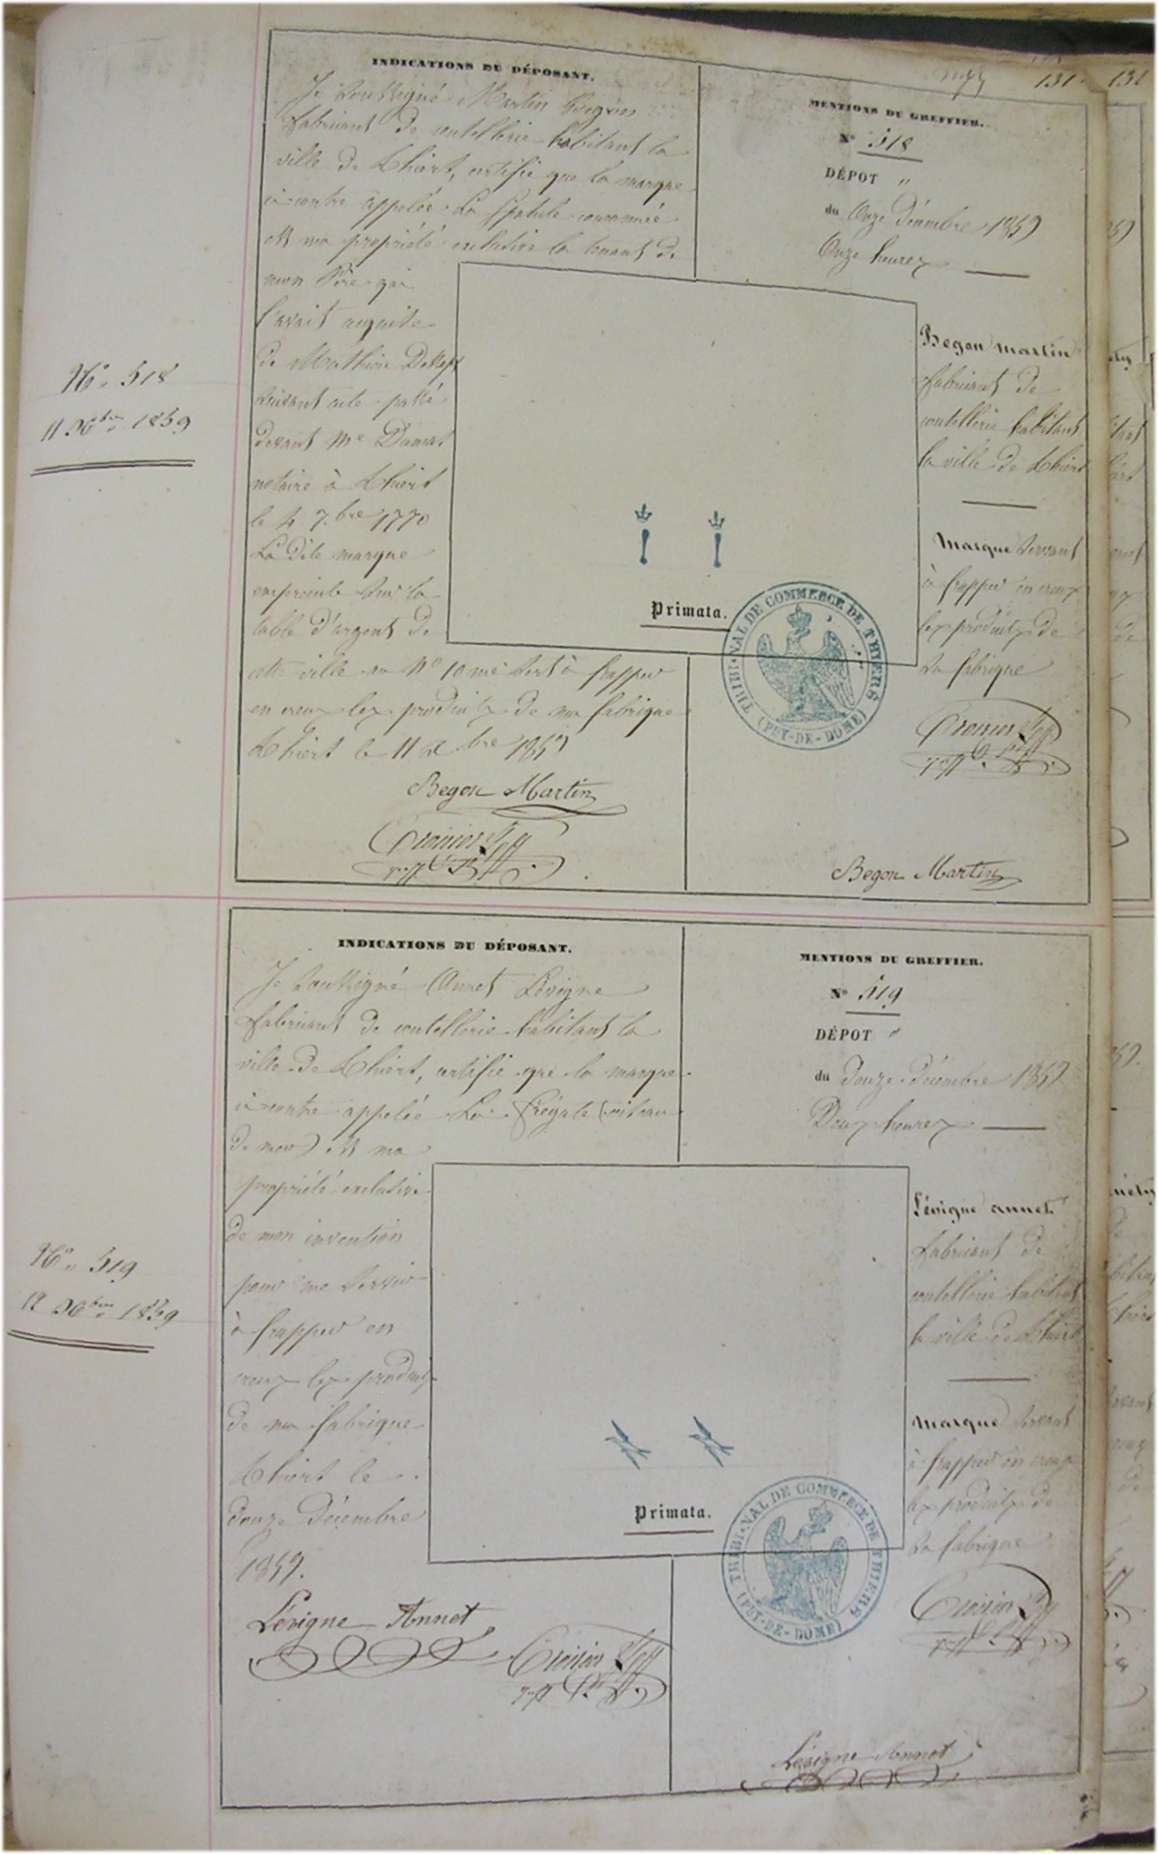 131.
131
N° 518
11 Xbre 1859
INDICATIONS DU DÉPOSANT.
Je soussigné Martin Begon
fabricant de coutellerie habitant la
ville de Thiert, certifie que la marque
ci contre appelée La Spatule couronnée
est ma propriété exclusive la tenant de
mon Père qui
l'avait acquise
de Mathieu
suivant acte passé
devant Me Dumas
notaire à Thiert
le 4 7.bre 1770
La dite marque
empreinte sur la
table d'argent de
cette ville au N° 10 me sert à frapper
en creux les produits de ma fabrique
Thiert le 11 Xbre 1859
Begon Martin
MENTIONS DU GREFFIER.
N° 518
DÉPOT "
du Onze Décembre 1859
Onze heures
Begon Martin
fabricant de
coutellerie habitant
la ville de Thiert
Marque servant
à frapper en creux
les produits de
sa fabrique
Begon Martin
Primata.
TRIBUNAL DE COMMERCE DE THIERS
(PUY-DE-DOME)
N° 519
12 Xbre 1859
INDICATIONS DU DÉPOSANT.
Je soussigné Annet Lévigne
fabricant de coutellerie habitant la
ville de Thiert, certifie que la marque
ci contre appelée La frégate (oiseau
de mer) est ma
propriété exclusive
de mon invention
pour me servir
à frapper en
creux les produits
de ma fabrique
Thiert le
douze Décembre
1859.
Lévigne Annet
MENTIONS DU GREFFIER.
N° 519
DÉPOT "
du Douze décembre 1859
Deux heures
Lévigne annet
fabricant de
coutellerie habitant
la ville de Thiert
Marque servant
à frapper en creux
les produits de
sa fabrique
Lévigne Annet
Primata.
TRIBUNAL DE COMMERCE DE THIERS
(PUY-DE-DOME)